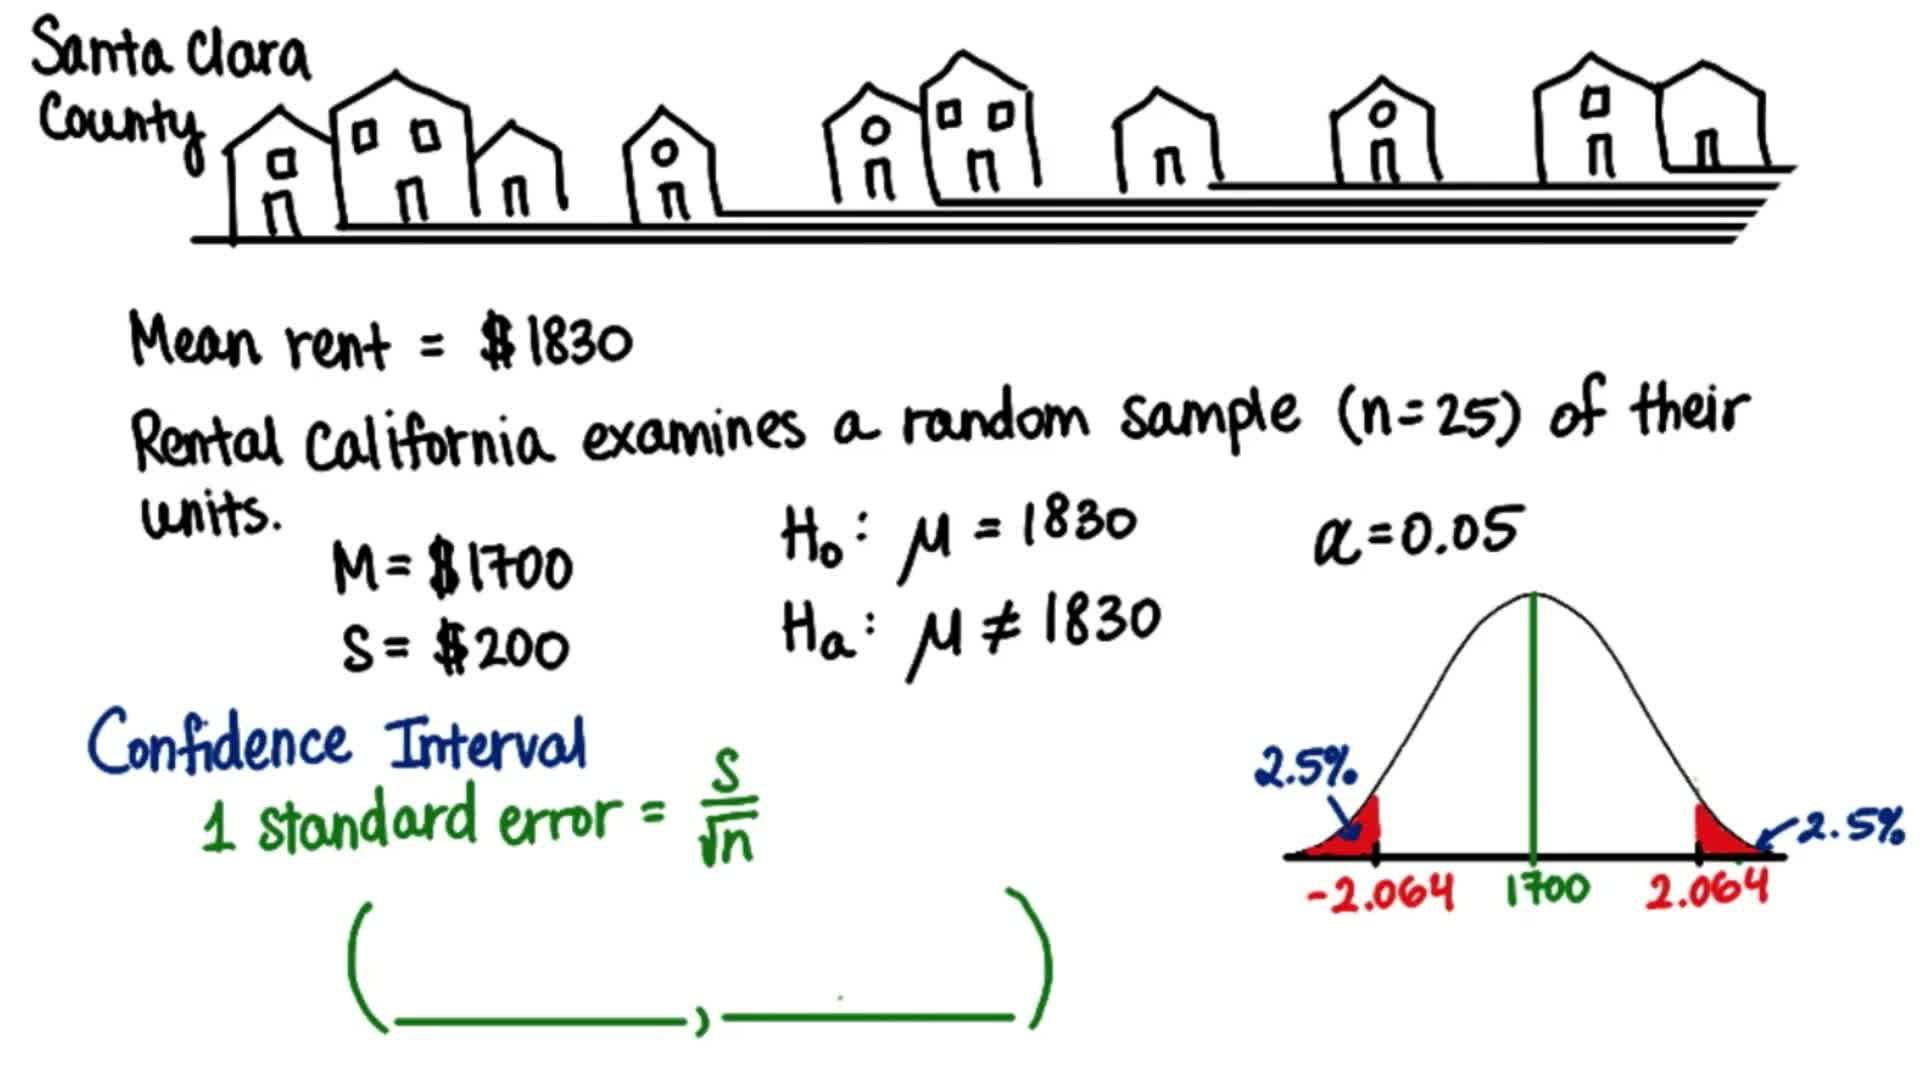 Santa Clara
County
Mean rent = $1830
Rental California examines a random sample (n=25) of their
units.
M = $1700
S = $200
H₀: μ = 1830
Hₐ: μ ≠ 1830
α = 0.05
Confidence Interval
1 standard error = S/√n
( ____ , ____ )
2.5%
2.5%
-2.064 1700 2.064